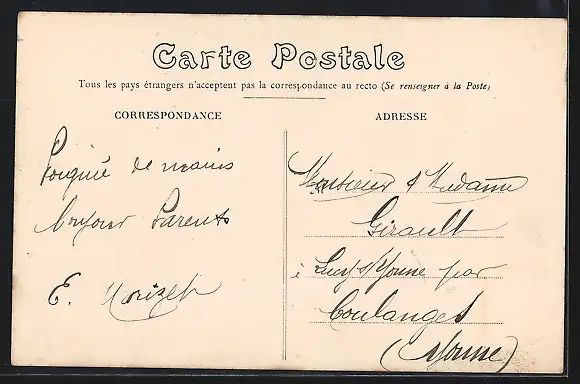 Carte Postale
Tous les pays étrangers n'acceptent pas la correspondance au recto (Se renseigner à la Poste)
CORRESPONDANCE
ADRESSE
Poignée de mains
bonjour Parents
E. Morizet
Monsieur & Madame
Girault
à Lucy s/Yonne par
Coulanges
(Yonne)